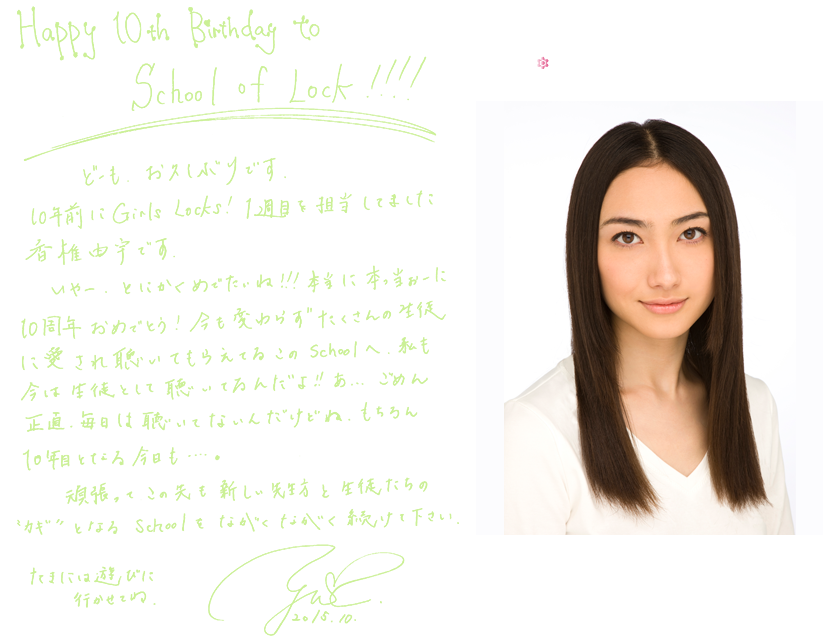 Happy 10th Birthday to
School of Lock!!!!
どーも、お久しぶりです.
10年前にGirls Locks! 1週目を担当してました
香椎由宇です.
いやー、とにかくめでたいね!!!本当に本っ当おーに
10周年おめでとう!今も変わらずたくさんの生徒
に愛され聴いてもらえてるこのSchoolへ、私も
今は生徒として聴いてるんだよ!!あ...ごめん
正直、毎日は聴いてないんだけどね、もちろん
10年目となる今日も….。
頑張ってこの先も新しい先生方と生徒たちの
"カギ"となるSchoolをながくながく続けて下さい.
たまには遊びに
行かせてね.
2015.10.